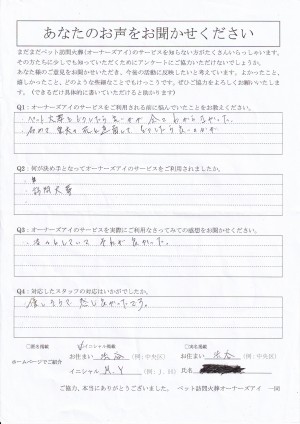 あなたのお声をお聞かせください
まだまだペット訪問火葬(オーナーズアイ)のサービスを知らない方がたくさんいらっしゃいます。
その方たちに少しでも知っていただくためにアンケートにご協力いただけないでしょうか。
あなた様のご意見をお聞かせいただき、今後の活動に反映したいと考えています。よかったこと、
嬉しかったこと、どのような些細なことでもけっこうです。ぜひご協力をよろしくお願いいたしま
す。(できるだけ具体的に書いていただけると助かります)
Q1:オーナーズアイのサービスをご利用される前に悩んでいたことをお教えください。
ペット火葬をどうしたら良いか全くわからなかった。
初めて
Q2:何が決め手となってオーナーズアイのサービスをご利用されましたか。
訪問火葬
Q3:オーナーズアイのサービスを実際にご利用なさってみての感想をお聞かせください。
それが良かった。
Q4:対応したスタッフの対応はいかがでしたか。
良かったです。
□匿名掲載 ✓イニシャル掲載 □実名掲載
ホームページでご紹介
お住まい (例:中央区) お住まい (例:中央区)
イニシャル M.Y (例:J.S) 氏名
ご協力、本当にありがとうございました。 ペット訪問火葬オーナーズアイ 一同